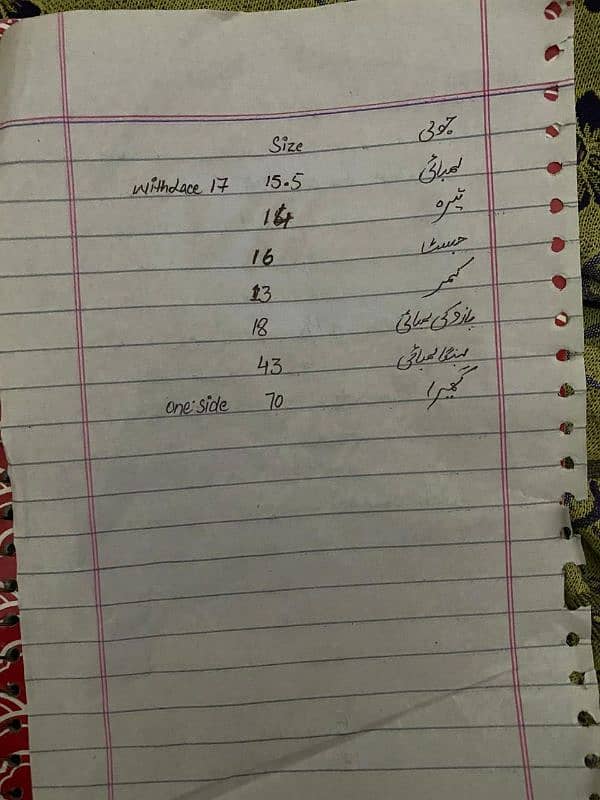 Size چولی
لمبائی 15.5 withlace 17
تیرہ 14
16
کمر 13
بازو کی لمبائی 18
لہنگا لمبائی 43
گھیرا 70 one side